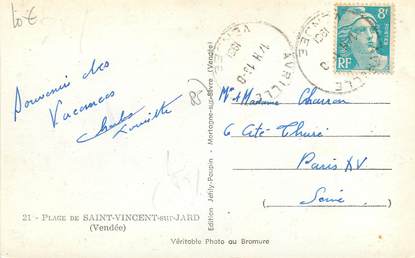 10€
8F
POSTES
RF
AVRILLÉ
VENDÉE
1951
85
Souvenir des
Vacances
Mr & Madame Charron
6 Cité Thuré
Paris XV
Seine
21 - PLAGE DE SAINT-VINCENT-sur-JARD
(Vendée)
Edition Jehly-Poupin - Mortagne-sur-Sèvre (Vendée)
Véritable Photo au Bromure